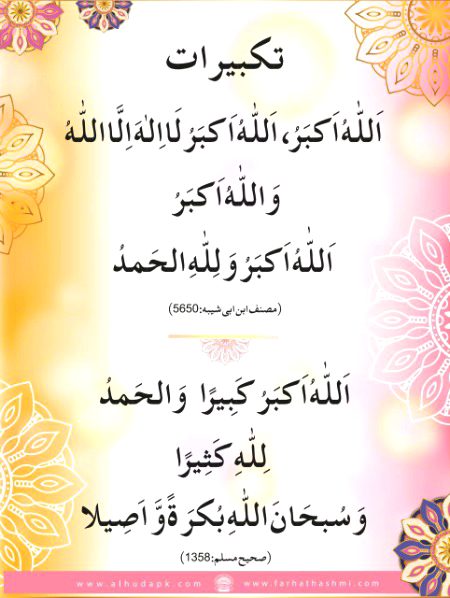 تکبیرات
اَللّٰهُ اَکبَرُ، اَللّٰهُ اَکبَرُ لَا اِلٰهَ اِلَّا اللّٰهُ
وَاللّٰهُ اَکبَرُ
اَللّٰهُ اَکبَرُ وَلِلّٰهِ الحَمدُ
(مصنف ابن ابی شیبه:5650)
اَللّٰهُ اَکبَرُ کَبِیرًا وَالحَمدُ
لِلّٰهِ کَثِیرًا
وَسُبحَانَ اللّٰهِ بُکرَةً وَّ اَصِیلا
(صحیح مسلم:1358)
www.alhudapk.com www.farhathashmi.com